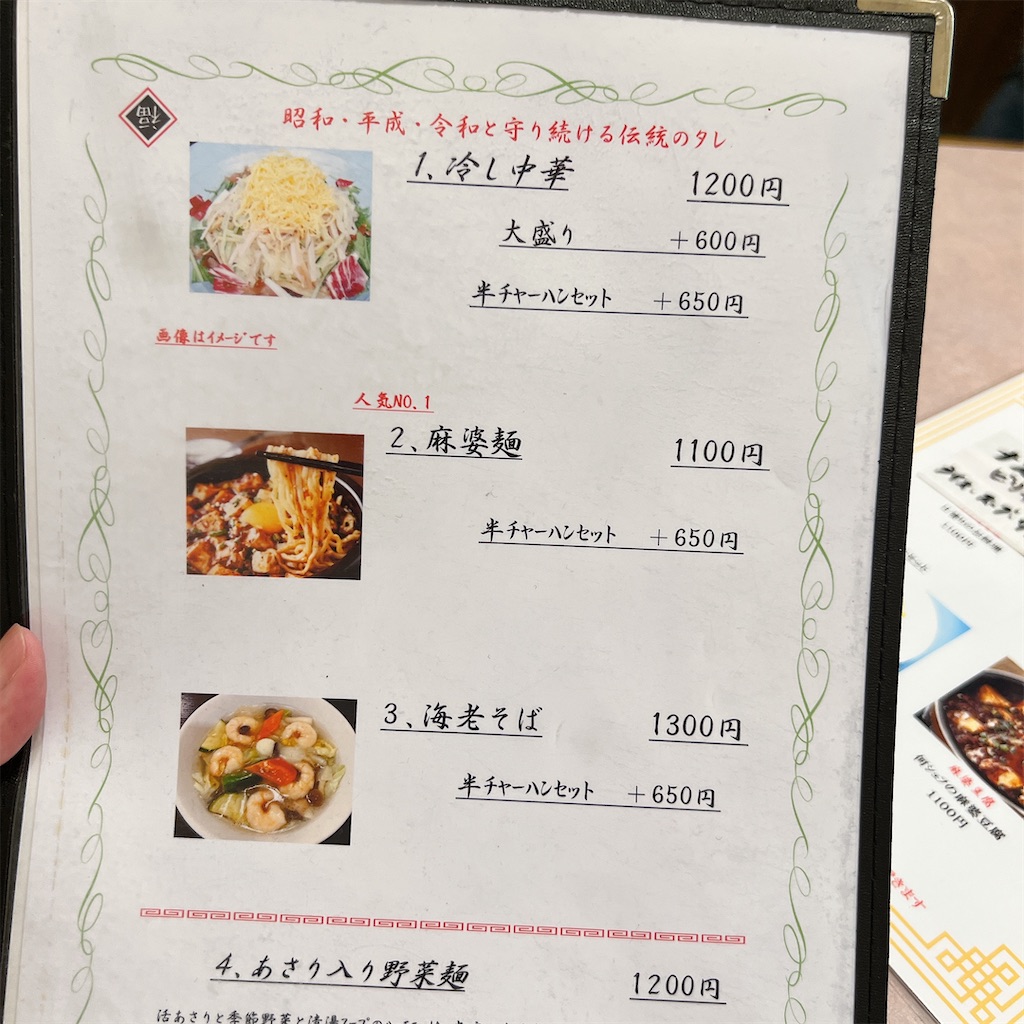 福
昭和・平成・令和と守り続ける伝統のタレ
1、冷し中華 1200円
大盛り +600円
半チャーハンセット +650円
画像はイメージです
人気NO.1
2、麻婆麺 1100円
半チャーハンセット +650円
3、海老そば 1300円
半チャーハンセット +650円
4、あさり入り野菜麺 1200円
活あさりと季節野菜と清湯スープの
麻婆豆腐
何シェフの麻婆豆腐
1100円
きます